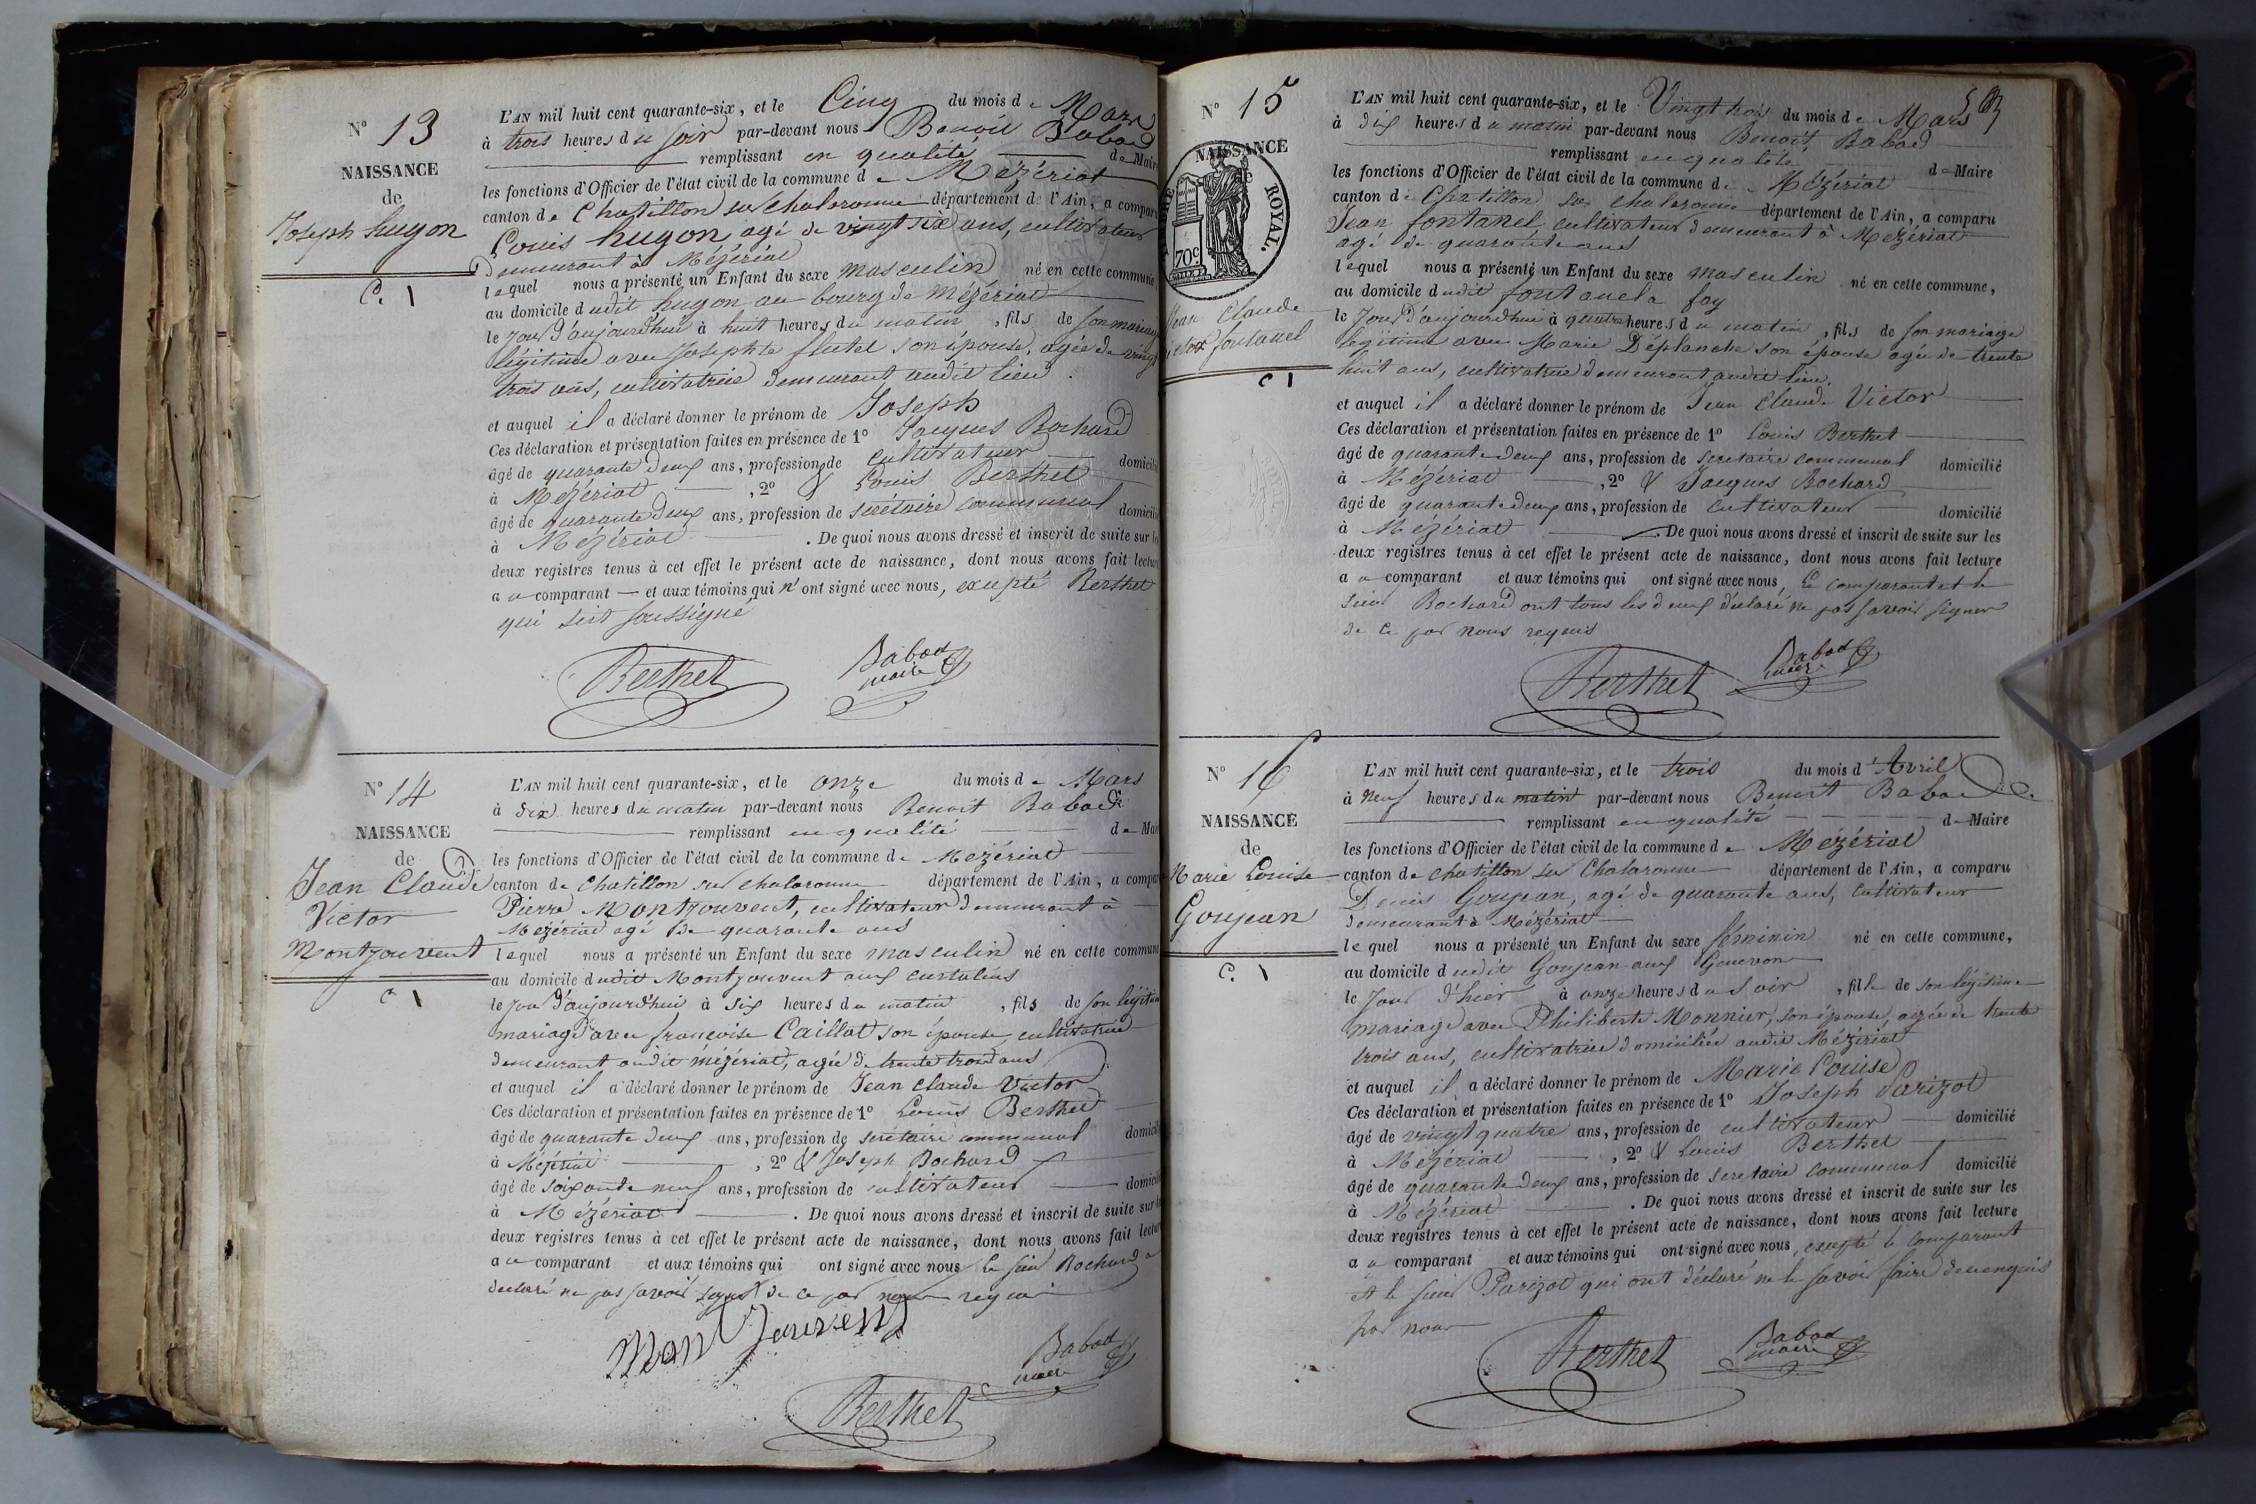 N° 13
NAISSANCE
de
Joseph hugon
C. 1
L'AN mil huit cent quarante-six, et le Cinq du mois de Mars
à trois heures du soir par-devant nous Benoit Babad
remplissant en qualité de Maire
les fonctions d'Officier de l'état civil de la commune de Mézériat
canton de Chatillon sur chalaronne département de l'Ain, a compar
Louis hugon, agé de vingt six ans, cultivateur
demeurant à Mézériat
lequel nous a présenté un Enfant du sexe masculin né en cette commune,
au domicile dudit hugon au bourg de Mézériat
le jour d'aujourd'hui à huit heures du matin, fils de son mariage
légitime avec Josephte flutet son épouse, agée de vingt
trois ans, cultivatrice demeurant audit lieu.
et auquel il a déclaré donner le prénom de Joseph
Ces déclaration et présentation faites en présence de 1° Jacques Bochard
âgé de quarante deux ans, profession de cultivateur domicilié
à Mézériat, 2° & Louis Berthet
âgé de quarante deux ans, profession de secrétaire communal domicilié
à Mézériat. De quoi nous avons dressé et inscrit de suite sur les
deux registres tenus à cet effet le présent acte de naissance, dont nous avons fait lecture
au comparant — et aux témoins qui n'ont signé avec nous, excepté Berthet
qui s'est soussigné
Berthet
Babad
maire
N° 14
NAISSANCE
de
Jean Claude
Victor
Montjouvent
C 1
L'AN mil huit cent quarante-six, et le onze du mois de Mars
à dix heures du matin par-devant nous Benoit Babad
remplissant en qualité de Mair
les fonctions d'Officier de l'état civil de la commune de Mézériat
canton de Chatillon sur chalaronne département de l'Ain, a compar
Pierre Montjouvent, cultivateur demeurant à
Mézériat agé de quarante ans
lequel nous a présenté un Enfant du sexe masculin né en cette commune
au domicile dudit Montjouvent aux
le jour d'aujourd'hui à six heures du matin, fils de son légitime
mariage avec françoise Caillat son épouse cultivatrice
demeurant audit mézériat, agée de trente trois ans
et auquel il a déclaré donner le prénom de Jean Claude Victor
Ces déclaration et présentation faites en présence de 1° Louis Berthet
âgé de quarante deux ans, profession de secrétaire communal domicilié
à Mézériat, 2° & Joseph Bochard
âgé de soixante neuf ans, profession de cultivateur domicilié
à Mézériat. De quoi nous avons dressé et inscrit de suite sur les
deux registres tenus à cet effet le présent acte de naissance, dont nous avons fait lecture
au comparant et aux témoins qui ont signé avec nous le sieur Bochard a
déclaré ne pas savoir signer de ce par nous requis
Montjouvent
Babad
maire
Berthet
N° 15
NAISSANCE
de
TIMBRE ROYAL.
70c
Jean Claude
Victor fontanel
C 1
L'AN mil huit cent quarante-six, et le Vingt trois du mois de Mars
à dix heures du matin par-devant nous Benoit Babad
remplissant en qualité de Maire
les fonctions d'Officier de l'état civil de la commune de Mézériat
canton de Chatillon sur chalaronne département de l'Ain, a comparu
Jean fontanel cultivateur demeurant à Mézériat
agé de quarante ans
lequel nous a présenté un Enfant du sexe masculin né en cette commune,
au domicile dudit fontanel a foy
le jour d'aujourd'hui à quatre heures du matin, fils de son mariage
légitime avec Marie Déplanche son épouse agée de trente
huit ans, cultivatrice demeurant audit lieu.
et auquel il a déclaré donner le prénom de Jean Claude Victor
Ces déclaration et présentation faites en présence de 1° Louis Berthet
âgé de quarante deux ans, profession de secrétaire communal domicilié
à Mézériat, 2° & Jacques Bochard
âgé de quarante deux ans, profession de Cultivateur domicilié
à Mézériat. De quoi nous avons dressé et inscrit de suite sur les
deux registres tenus à cet effet le présent acte de naissance, dont nous avons fait lecture
au comparant et aux témoins qui ont signé avec nous, le comparant et le
sieur Bochard ont tous les deux déclaré ne pas savoir signer
de ce par nous requis
Berthet
Babad
maire
N° 16
NAISSANCE
de
Marie Louise
Goujean
C. 1
L'AN mil huit cent quarante-six, et le trois du mois d'Avril
à neuf heures du matin par-devant nous Benoit Babad
remplissant en qualité de Maire
les fonctions d'Officier de l'état civil de la commune de Mézériat
canton de chatillon sur Chalaronne département de l'Ain, a comparu
Denis Goujean, agé de quarante ans, Cultivateur
demeurant à Mézériat
lequel nous a présenté un Enfant du sexe féminin né en cette commune,
au domicile dudit Goujean aux Genevon
le jour d'hier à onze heures du soir, fille de son légitime
mariage avec Philiberte Monnier, son épouse, agée de trente
trois ans, cultivatrice domiciliée audit Mézériat
et auquel il a déclaré donner le prénom de Marie Louise
Ces déclaration et présentation faites en présence de 1° Joseph Parizot
âgé de vingt quatre ans, profession de cultivateur domicilié
à Mézériat, 2° & Louis Berthet
âgé de quarante deux ans, profession de secrétaire communal domicilié
à Mézériat. De quoi nous avons dressé et inscrit de suite sur les
deux registres tenus à cet effet le présent acte de naissance, dont nous avons fait lecture
au comparant et aux témoins qui ont signé avec nous, excepté le comparant
et le sieur Parizot qui ont déclaré ne le savoir faire de ce enquis
par nous
Berthet
Babad
maire